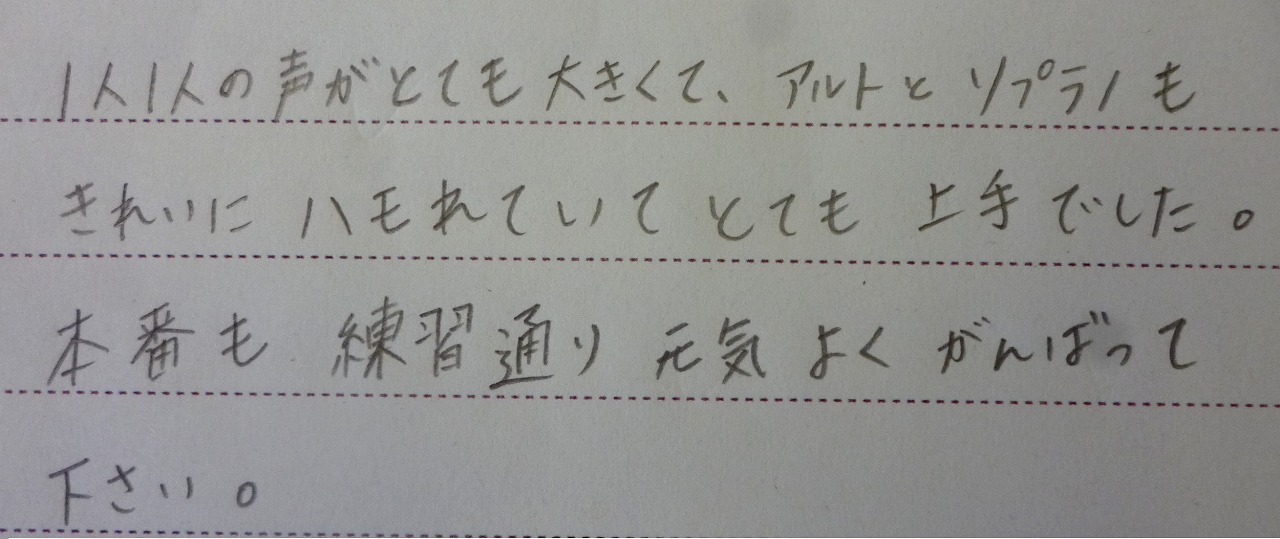 1人1人の声がとても大きくて、アルトとソプラノも
きれいにハモれていてとても上手でした。
本番も練習通り元気よくがんばって
下さい。